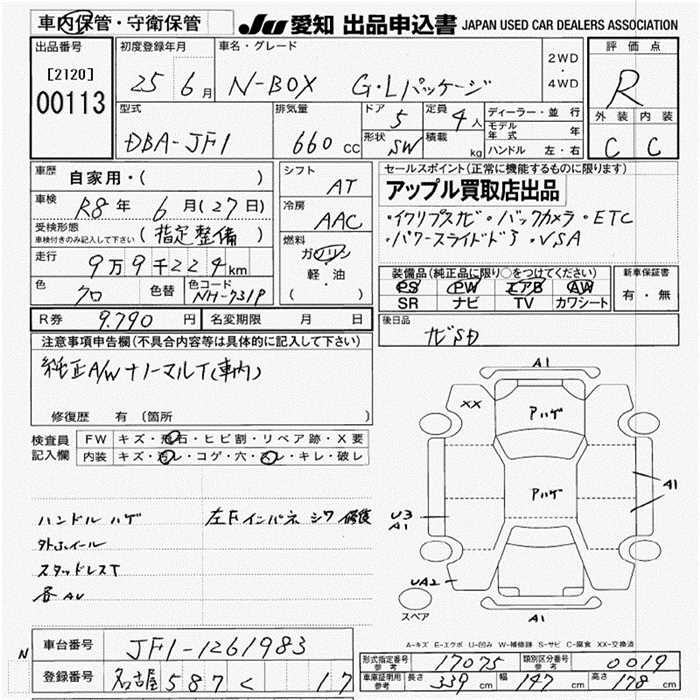 車内保管・守衛保管
JU 愛知 出品申込書 JAPAN USED CAR DEALERS ASSOCIATION
出品番号
[2120]
00113
初度登録年月
25年 6月
車名・グレード
N-BOX G・Lパッケージ
2WD
・
4WD
評価点
R
外装 内装
C C
型式
DBA-JF1
排気量
660 CC
ドア
5
形状
SW
定員
4人
積載
kg
ディーラー・並行
モデル年式 年
ハンドル 左・右
車歴
自家用・( )
車検
R8年 6月(27日)
受検形態
車検付きのみ記入して下さい
(指定整備)
走行
9万9千224km
色
クロ
色替
色コード
NH-731P
シフト
AT
冷房
AAC
燃料
ガソリン
・
軽・油
( )
セールスポイント(正常に機能するものに限ります)
アップル買取店出品
・イクリプスナビ・バックカメラ・ETC
・パワースライドドア・VSA
装備品(純正品に限り○をつけてください)
PS PW エアB AW
SR ナビ TV カワシート
新車保証書
有・無
R券 9.790円
名変期限 月 日
後日品
ナビSD
注意事項申告欄(不具合内容等は具体的に記入して下さい)
純正A/W+ノーマルT(車内)
修復歴 有 〔箇所 〕
検査員
記入欄
FW キズ・飛石・ヒビ割・リペア跡・X要
内装 キズ・汚レ・コゲ・穴・スレ・キレ・破レ
ハンドル ハゲ
左Fインパネ シワ 修復
外ホイール
スタッドレスT
各AU
A1
XX
アハゲ
アハゲ
U3
A1
A1
UA2
スペア
A1
A-キズ E-エクボ U-凹み W-補修跡 S-サビ C-腐食 XX-交換済
N
車台番号 JF1-1261983
登録番号 名古屋 587 く 17
形式指定番号
参考
17075
類別区分番号
参考
0019
車庫証明用
参考
長さ 339cm 幅 147cm 高さ 178cm